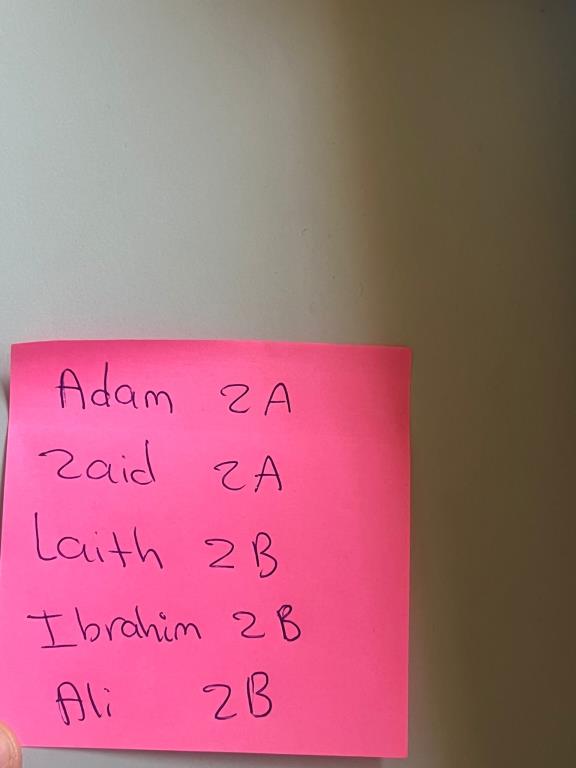 Adam 2A
Zaid 2A
Laith 2B
Ibrahim 2B
Ali 2B